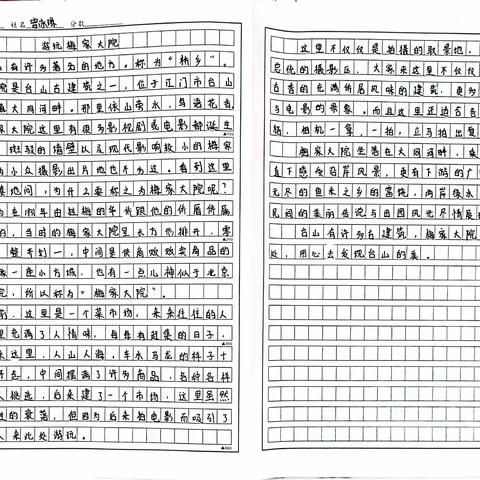 姓名 曾冰琪 分数
游玩梅家大院
有许多著名的地方。称为“侨乡”。
院是台山古建筑之一，位于江门市台山
镇大同河畔。那里依山旁水，鸟语花香
家大院这里有很多影视剧或电影都诞生
斑驳的墙壁以及现代影响较小的梅家
为小众摄影出片地也不为过。看到这里
地问，为什么要称之为梅家大院呢？
的，当时的梅家大院呈长方形排开，零
整齐划一，中间是供商贩贩卖商品的
像一座小方城，也有一点儿神似于北京
院，所以称为“梅家大院”。
到，这里是一个菜市场，来来往往的人
里充满了人情味，每每有赶集的日子，
来这里，人山人海，车水马龙的样子十
，中间摆满了许多商品，各种各样
人挑选，后来建了一个市场，这里虽然
的衰落，但因为后来拍电影而吸引了
人来此处游玩。
这里不仅仅是拍摄的取景地，
的摄影丘，大家来这里不仅仅
古香的充满侨居风味的建筑，更多
与电影的景象。而且这里还适合各
拍，相机一拿，一拍，立马拍出复
梅家大院坐落在大同河畔，来
直下感受沿岸风景，更有下游的广
无尽的鱼米之乡的富饶，两岸绿水
民间的美丽传说与田园风光尽情展
台山有许多古建筑，梅家大院
处，用心去发现台山的美。